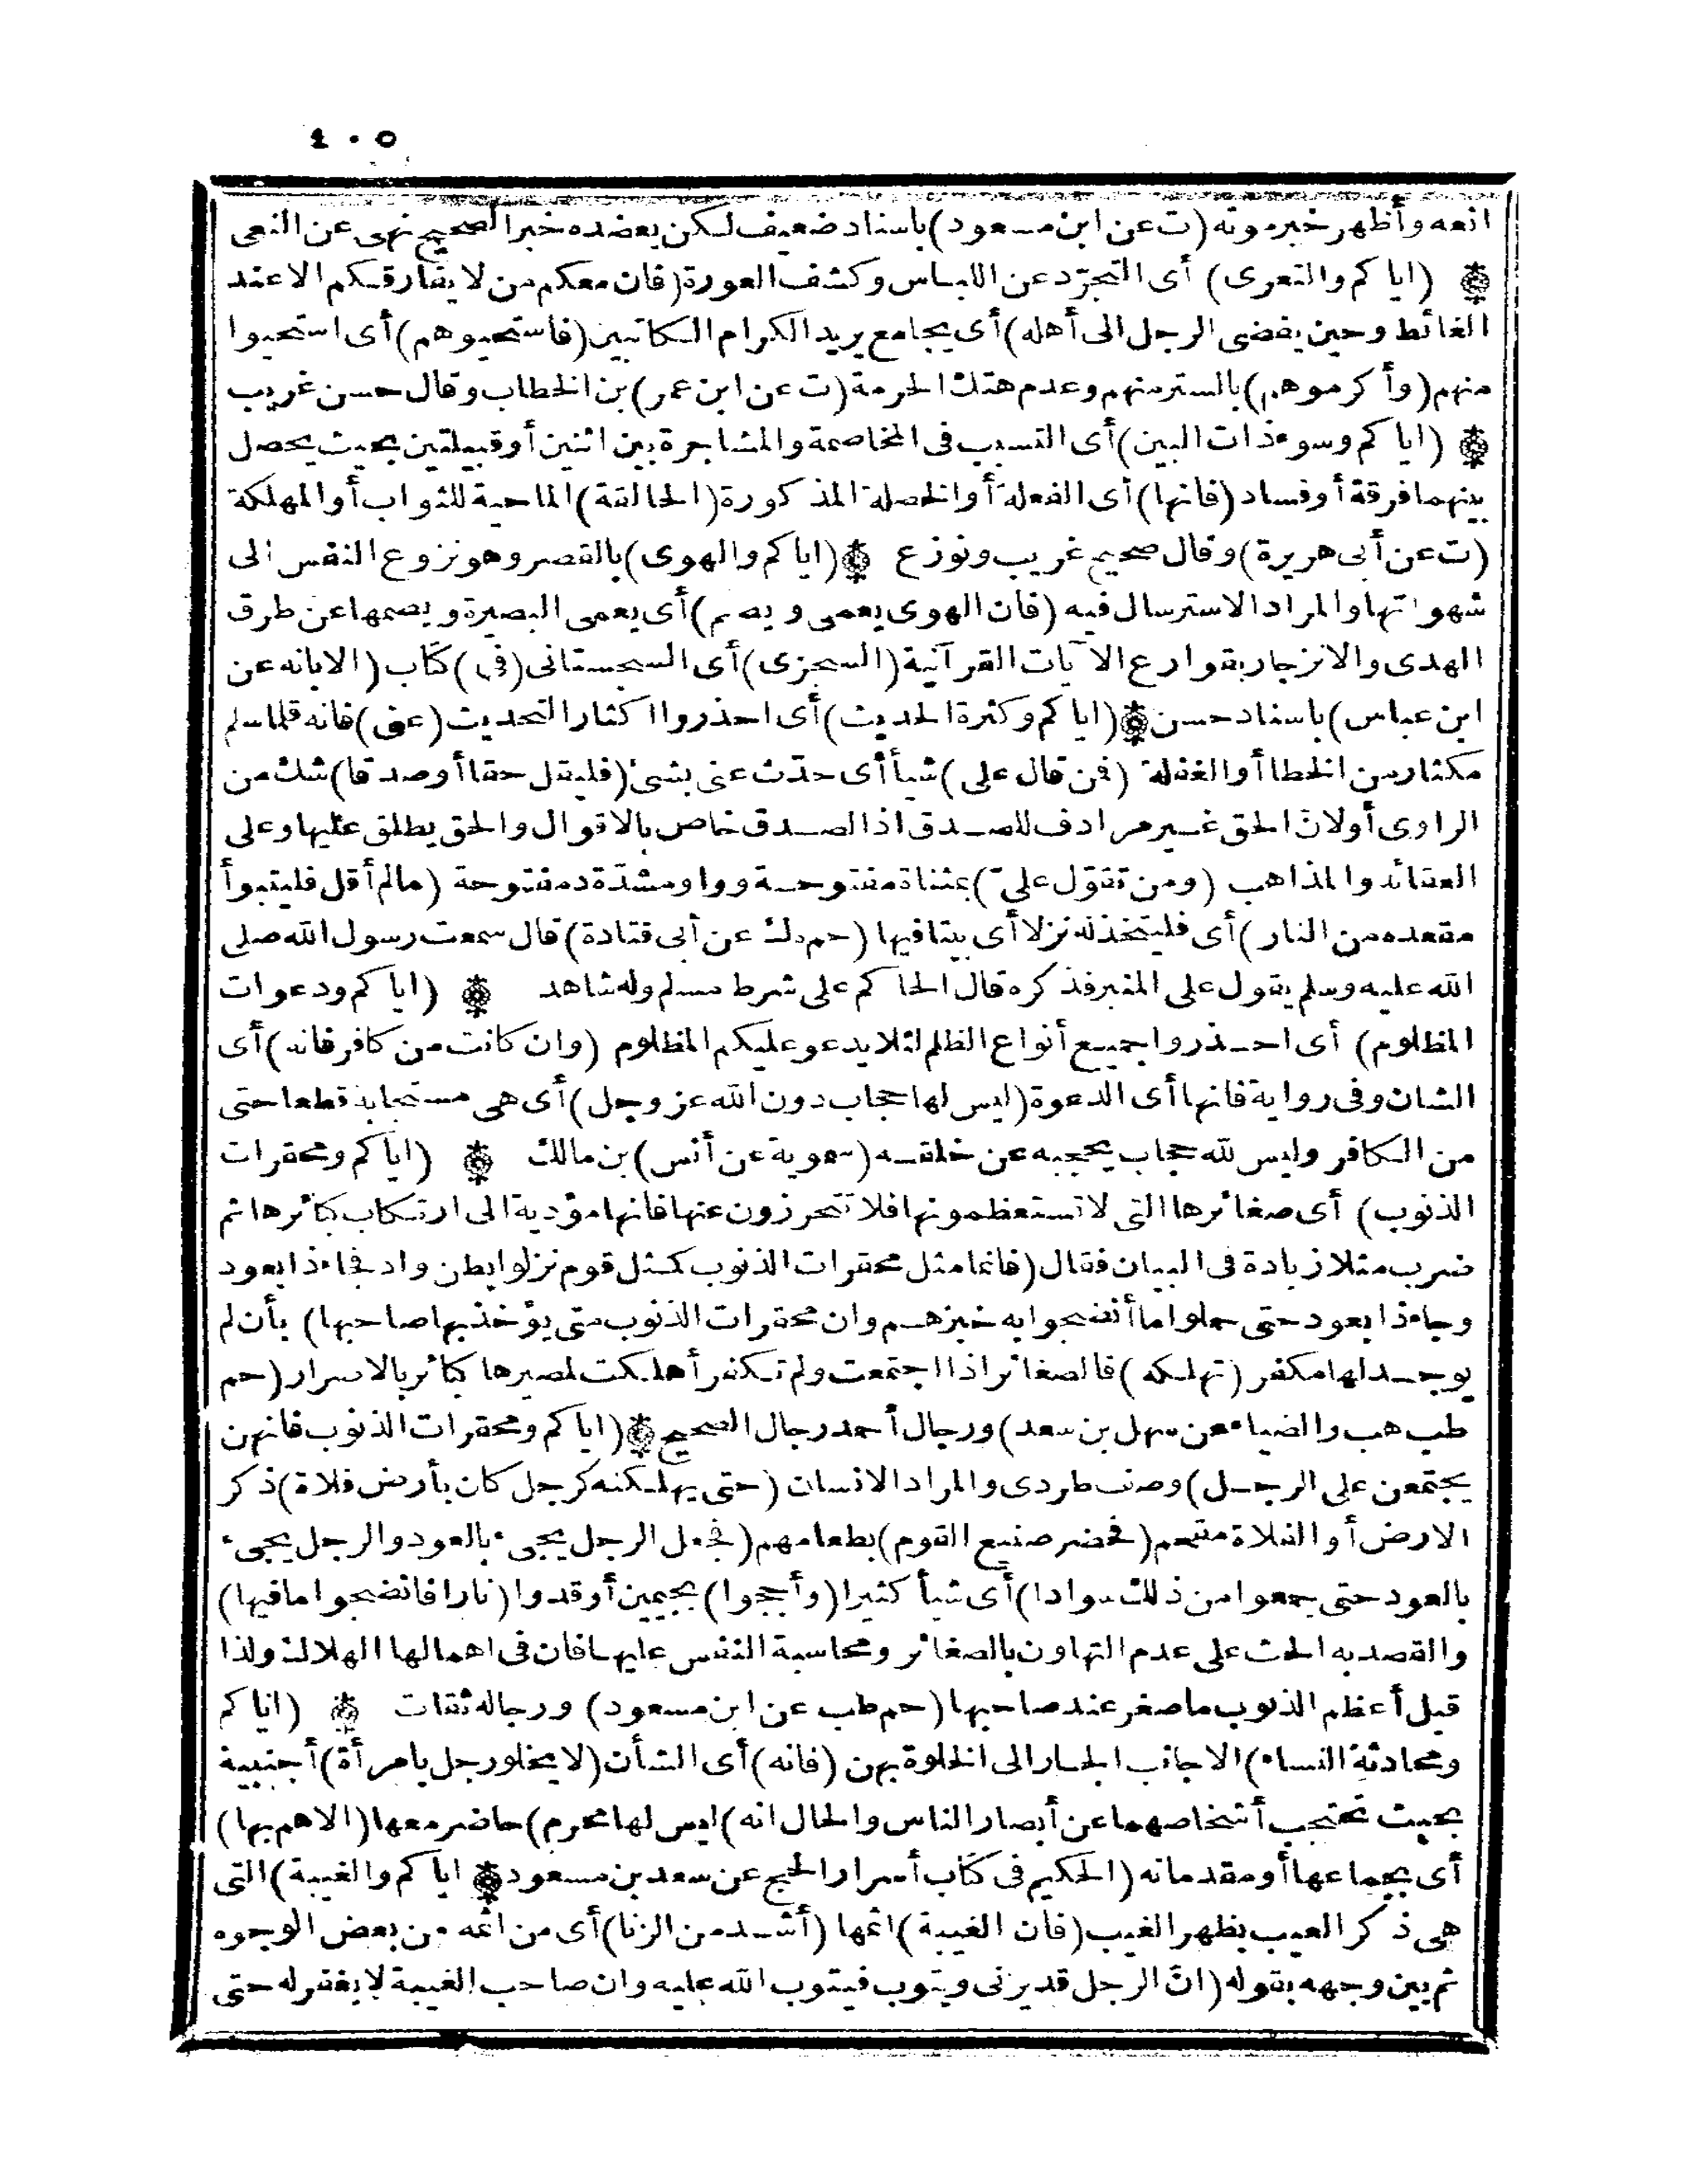 ٤٠٥
انعه وأظهر خبر موته (ت عن ابن مسعود) باسناد ضعيف لكن يعضده خبر الصحيح نهى عن النعى
(اياكم والتعرى) أى التجرّد عن اللباس وكشف العورة (فان معكم من لا يفارقكم الا عند
الغائط وحين يفضى الرجل الى أهله) أى يجامع يريد الكرام الكاتبين (فاستحيوهم) أى استحيوا
منهم (وأكرموهم) بالستر منهم وعدم هتك الحرمة (ت عن ابن عمر) بن الخطاب وقال حسن غريب
(اياكم وسوء ذات البين) أى التسبب فى المخاصمة والمشاجرة بين اثنين أو قبيلتين بحيث يحصل
بينهما فرقة أو فساد (فانها) أى الفعلة أو الخصلة المذكورة (الحالقة) الماحية للثواب أو المهلكة
(ت عن أبى هريرة) وقال صحيح غريب ونوزع (اياكم والهوى) بالقصر وهو نزوع النفس الى
شهواتها والمراد الاسترسال فيه (فان الهوى يعمى ويصم) أى يعمى البصيرة ويصمها عن طرق
الهدى والانزجار بقوارع الآيات القرآنية (السجزى) أى السجستانى (فى) كتاب (الابانه عن
ابن عباس) باسناد حسن (اياكم وكثرة الحديث) أى احذروا اكثار التحديث (عنى) فانه قلما سلم
مكثار من الخطا أو الغفلة (فمن قال على) شيأ أى حدّث عنى بشئ (فليقل حقا أو صدقا) شك من
الراوى أو لانّ الحق غير مرادف للصدق اذ الصدق خاص بالاقوال والحق يطلق عليها وعلى
العقائد والمذاهب (ومن تقوّل علىّ) بمثناة مفتوحة وواو مشدّدة مفتوحة (مالم أقل فليتبوأ
مقعده من النار) أى فليتخذله نزلا أى بيتا فيها (حم ه ك عن أبى قتادة) قال سمعت رسول الله صلى
الله عليه وسلم يقول على المنبر فذكره قال الحاكم على شرط مسلم وله شاهد (اياكم ودعوات
المظلوم) أى احذروا جميع أنواع الظلم لئلا يدعو عليكم المظلوم (وان كانت من كافر فانه) أى
الشان وفى رواية فانها أى الدعوة (ليس لها حجاب دون الله عز وجل) أى هى مستجابة قطعا حتى
من الكافر وليس لله حجاب يحجبه عن خلقه (سمويه عن أنس) بن مالك (اياكم ومحقرات
الذنوب) أى صغائرها التى لا تستعظمونها فلا تتحرزون عنها فانها مؤدية الى ارتكاب كبائرها ثم
ضرب مثلا زيادة فى البيان فقال (فانما مثل محقرات الذنوب كمثل قوم نزلوا بطن واد فجاء ذا بعود
وجاء ذا بعود حتى حملوا ما أنضجوا به خبزهم وان محقرات الذنوب متى يؤخذ بها صاحبها) بأن لم
يوجد لها مكفر (تهلكه) فالصغائر اذا اجتمعت ولم تكفر أهلكت لمصيرها كبائر بالاصرار (حم
طب هب والضياء عن سهل بن سعد) ورجال أحمد رجال الصحيح (اياكم ومحقرات الذنوب فانهن
يجتمعن على الرجل) وصف طردى والمراد الانسان (حتى يهلكنه كرجل كان بأرض فلاة) ذكر
الارض أو الفلاة مقحم (فحضر صنيع القوم) بطعامهم (فجعل الرجل يجىء بالعود والرجل يجىء
بالعود حتى جمعوا من ذلك سوادا) أى شيأ كثيرا (وأججوا) بجيمين أوقدوا (نارا فانضجوا ما فيها)
والقصد به الحث على عدم التهاون بالصغائر ومحاسبة النفس عليها فان فى اهمالها الهلاك ولذا
قيل أعظم الذنوب ما صغر عند صاحبها (حم طب عن ابن مسعود) ورجاله ثقات (اياكم
ومحادثة النساء) الاجانب الجار الى الخلوة بهن (فانه) أى الشأن (لا يخلو رجل بامرأة) أجنبية
بحيث تحتجب أشخاصهما عن أبصار الناس والحال انه (ليس لها محرم) حاضر معها (الا هم بها)
أى بجماعها أو مقدماته (الحكيم فى كتاب أسرار الحج عن سعد بن مسعود) اياكم والغيبة) التى
هى ذكر العيب بظهر الغيب (فان الغيبة) اثمها (أشد من الزنا) أى من اثمه من بعض الوجوه
ثم بين وجهه بقوله (انّ الرجل قد يزنى ويتوب فيتوب الله عليه وان صاحب الغيبة لا يغفر له حتى